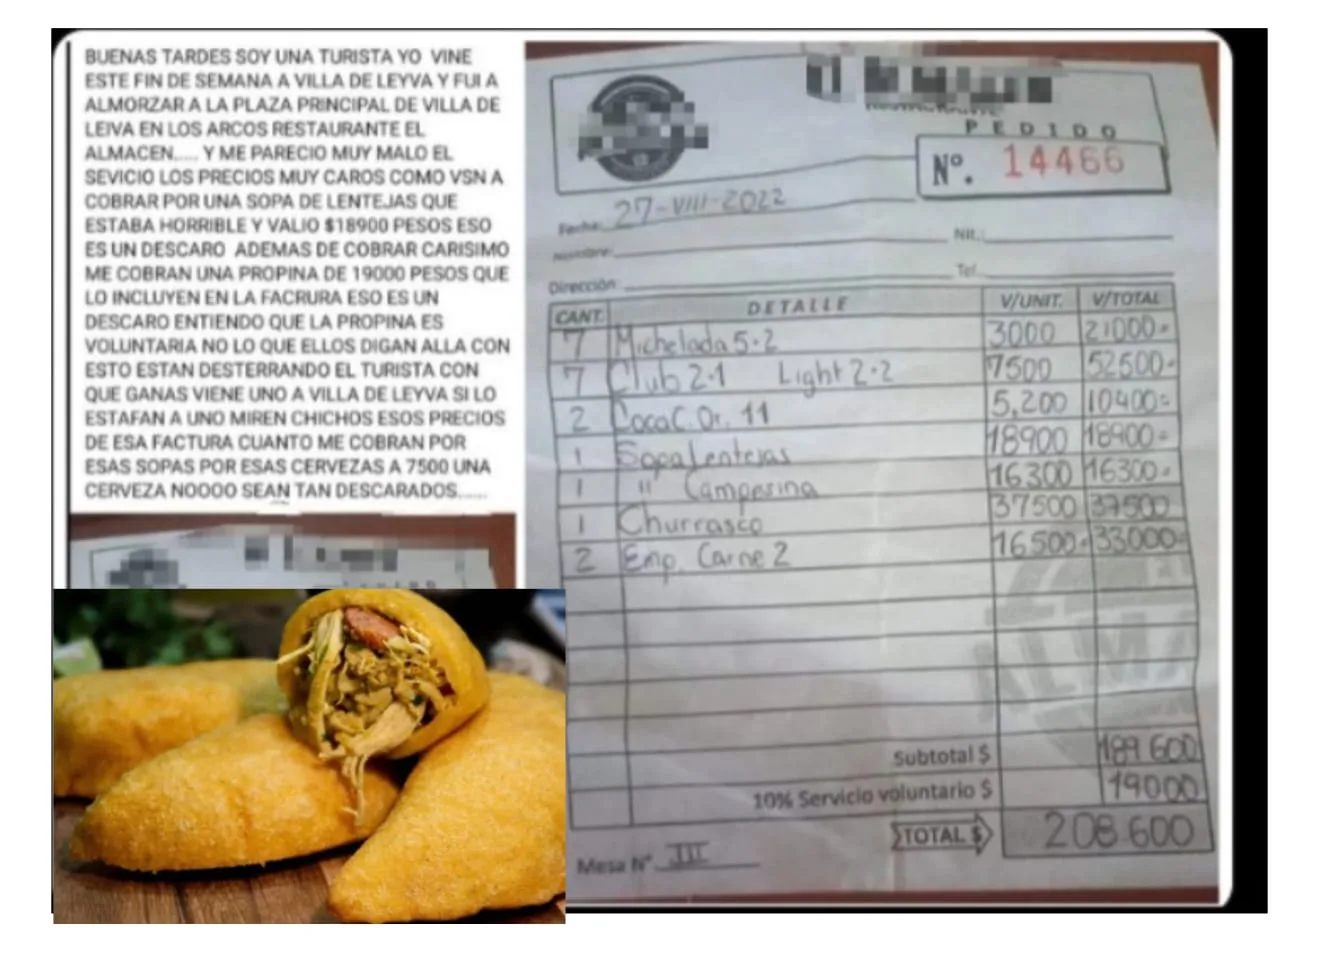 BUENAS TARDES SOY UNA TURISTA YO VINE
ESTE FIN DE SEMANA A VILLA DE LEYVA Y FUI A
ALMORZAR A LA PLAZA PRINCIPAL DE VILLA DE
LEIVA EN LOS ARCOS RESTAURANTE EL
ALMACEN..... Y ME PARECIO MUY MALO EL
SEVICIO LOS PRECIOS MUY CAROS COMO VSN A
COBRAR POR UNA SOPA DE LENTEJAS QUE
ESTABA HORRIBLE Y VALIO $18900 PESOS ESO
ES UN DESCARO ADEMAS DE COBRAR CARISIMO
ME COBRAN UNA PROPINA DE 19000 PESOS QUE
LO INCLUYEN EN LA FACRURA ESO ES UN
DESCARO ENTIENDO QUE LA PROPINA ES
VOLUNTARIA NO LO QUE ELLOS DIGAN ALLA CON
ESTO ESTAN DESTERRANDO EL TURISTA CON
QUE GANAS VIENE UNO A VILLA DE LEYVA SI LO
ESTAFAN A UNO MIREN CHICHOS ESOS PRECIOS
DE ESA FACTURA CUANTO ME COBRAN POR
ESAS SOPAS POR ESAS CERVEZAS A 7500 UNA
CERVEZA NOOOO SEAN TAN DESCARADOS......
PEDIDO
Nº. 14466
Fecha: 27-VIII-2022
Nombre: Nit.:
Dirección: Tel.
CANT. DETALLE V/UNIT. V/TOTAL
7 Michelada 5-2 3000 21000=
7 Club 2-1 Light 2-2 7500 52500=
2 Coca C. Or. 11 5,200 10400=
1 Sopa Lentejas 18900 18900=
1 " Campesina 16300 16300=
1 Churrasco 37500 37500
2 Emp. Carne 2 16500= 33000=
Subtotal $ 189.600
10% Servicio voluntario $ 19000
TOTAL $ 208.600
Mesa Nº III